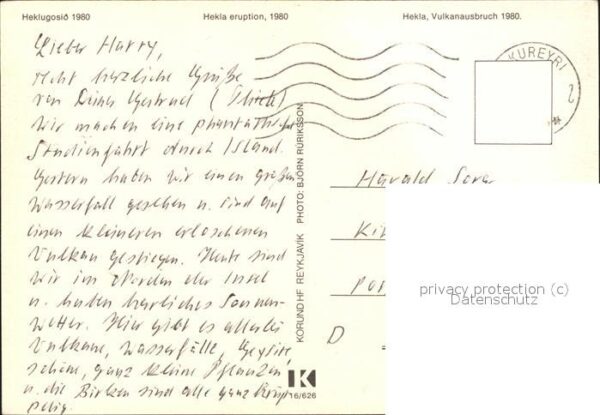 Heklugosið 1980
Hekla eruption, 1980
Hekla, Vulkanausbruch 1980.
KUREYRI
2
Lieber Harry,
recht herzliche Grüße
von Deiner Gertrud
Wir machen eine phantastische
Studienfahrt durch Island.
Gestern haben wir einen großen
Wasserfall gesehen u. sind auf
einen kleineren erloschenen
Vulkan gestiegen. Heute sind
wir im Norden der Insel
u. haben herrliches Sonnen-
wetter. Hier gibt es allerlei
Vulkane, Wasserfälle, Geysire,
schöne, ganz kleine Pflanzen,
u. die Birken sind alle ganz
KORUND HF REYKJAVÍK PHOTO: BJÖRN RÚRIKSSON
K
16/626
Harald
D
privacy protection (c)
Datenschutz